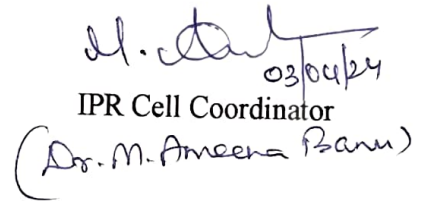 M.
03/04/24
IPR Cell Coordinator
(Dr. M. Ameena Banu)